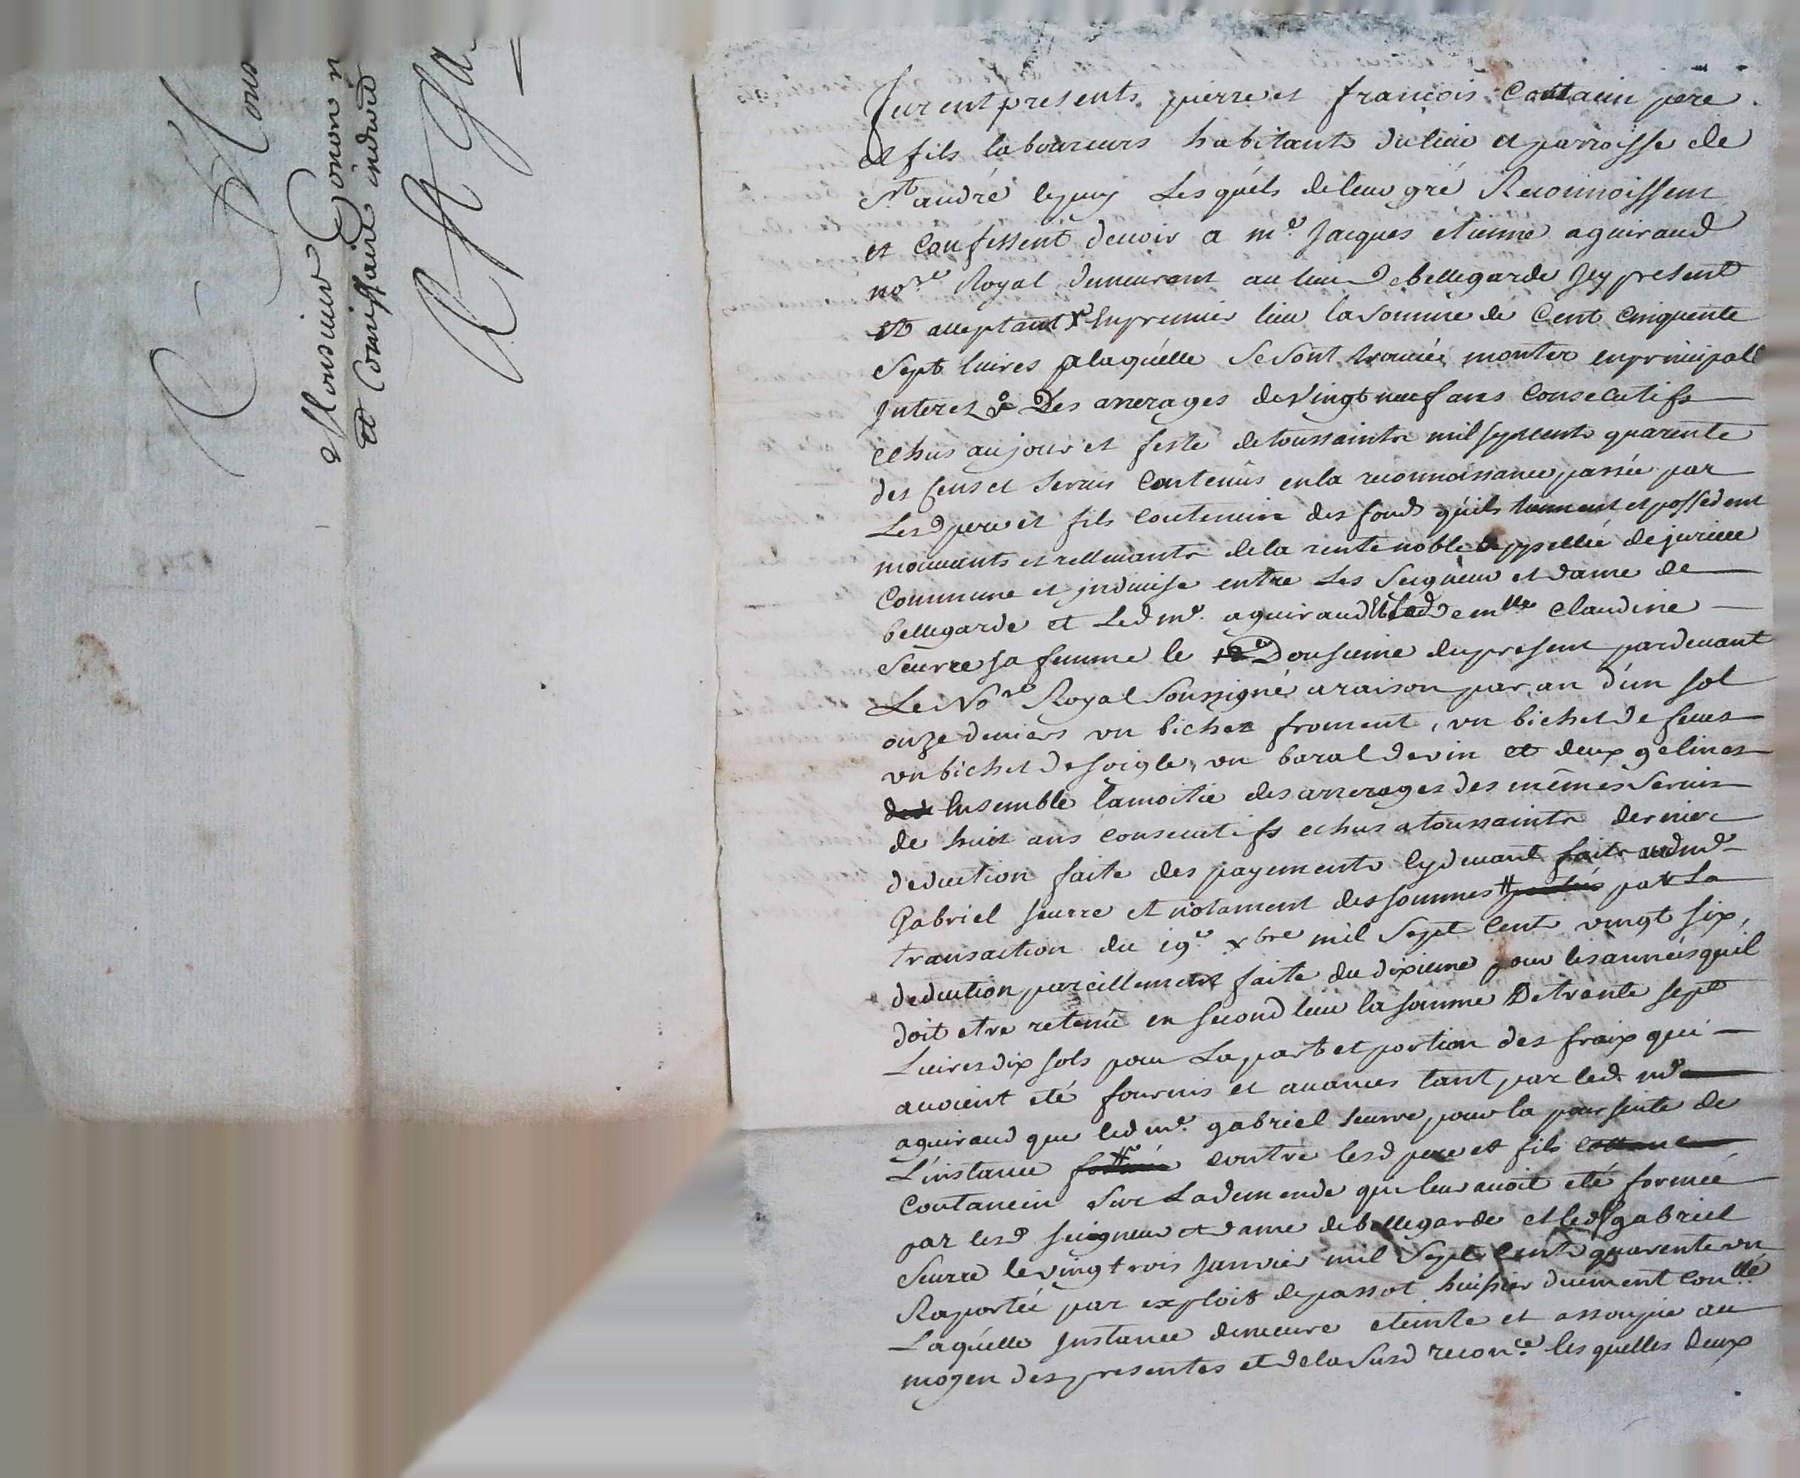 A Mons
Monsieur Gonon n
et Commissaire en droit
A Ga
furent presents pierre et francois Coutancin pere
et fils laboureurs habitants du lieu et parroisse de
St. andré le puy Lesquéls de leur gré Reconnoissent
et Confessent devoir a me. Jacques etienne aguiraud
nore. Royal demeurant au lieu de bellegarde Jcy present
et acceptant Enpremier lieu la somme de Cent Cinquente
sept livres a laquélle se sont trouvées monter en principall
Interez & Des arrerages de vingt neuf ans consecutifs
echus au jour et feste de toussaints mil sept cents quarente
des Cens et servis Contenûs en la reconnoissance passée par
Lesd pere et fils coutancin des fonds qu'ils tiennent et possedent
mouvants et rellevants de la rente noble appellée de jurieu
Commune et jndivise entre Les Seigneur et dame de
bellegarde et Led me. aguiraud et lad demlle claudine
Seurre sa femme le Dousieme du present pardevant
Le Nore Royal soussigné a raison par an d'un sol
onze deniers un bichet froment, un bichet de feves
un bichet de soigle, un baral de vin et deux gelines
Ensemble la moitie des arrerages des mêmes servis
de huit ans consecutifs echus a toussaints dernier
deduction faite des payements cy devant faits aud me.
Gabriel seurre et notament des sommes par La
transaction du 19e. xbre mil sept cent vingt six,
deduction pareillement faite du dixieme pour les années qu'il
doit etre retenû en second lieu la somme De trente sept
Livres dix sols pour La part et portion des fraix qui
avoient eté fournis et avancés tant par led. me
aguiraud que led me. gabriel seurre pour la poursuite de
L'instance contre lesd pere et fils
Coutancin sur La demende qui leur avoit eté formée
par lesd seigneur et dame de bellegarde et led gabriel
Seurre le vingt rois Janvier mil sept cents quarente un
Raportée par exploit de passot huissier duement conlle
Laquélle Jnstance demeure eteinte et assoupie au
moyen des presentes et de la susd reconce. lesquelles deux